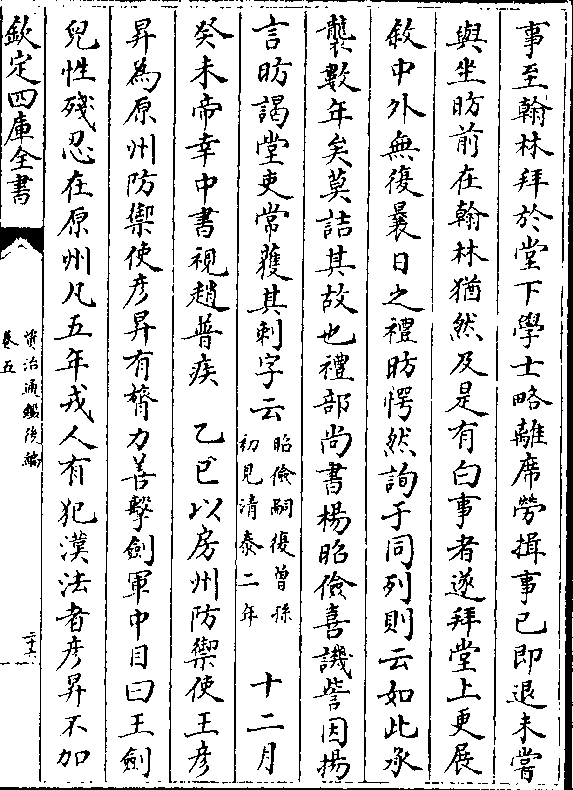 事至翰林拜於堂下學士略離席勞揖事已即退未嘗
與坐昉前在翰林猶然及是有白事者遂拜堂上更展
敘中外無復曩日之禮昉愕然詢于同列則云如此承
襲數年矣莫詰其故也禮部尚書楊昭儉喜譏訾因揚
言昉謁堂吏常獲其刺字云昭儉嗣復曽孫初見清泰二年 十二月
癸未帝幸中書視趙普疾 乙巳以房州防禦使王彦
昇為原州防禦使彦昇有膂力善擊劍軍中目曰王劍
兒性殘忍在原州凡五年戎人有犯漢法者彦昇不加
欽定四庫全書
資治通鑑後編
卷五
二十六